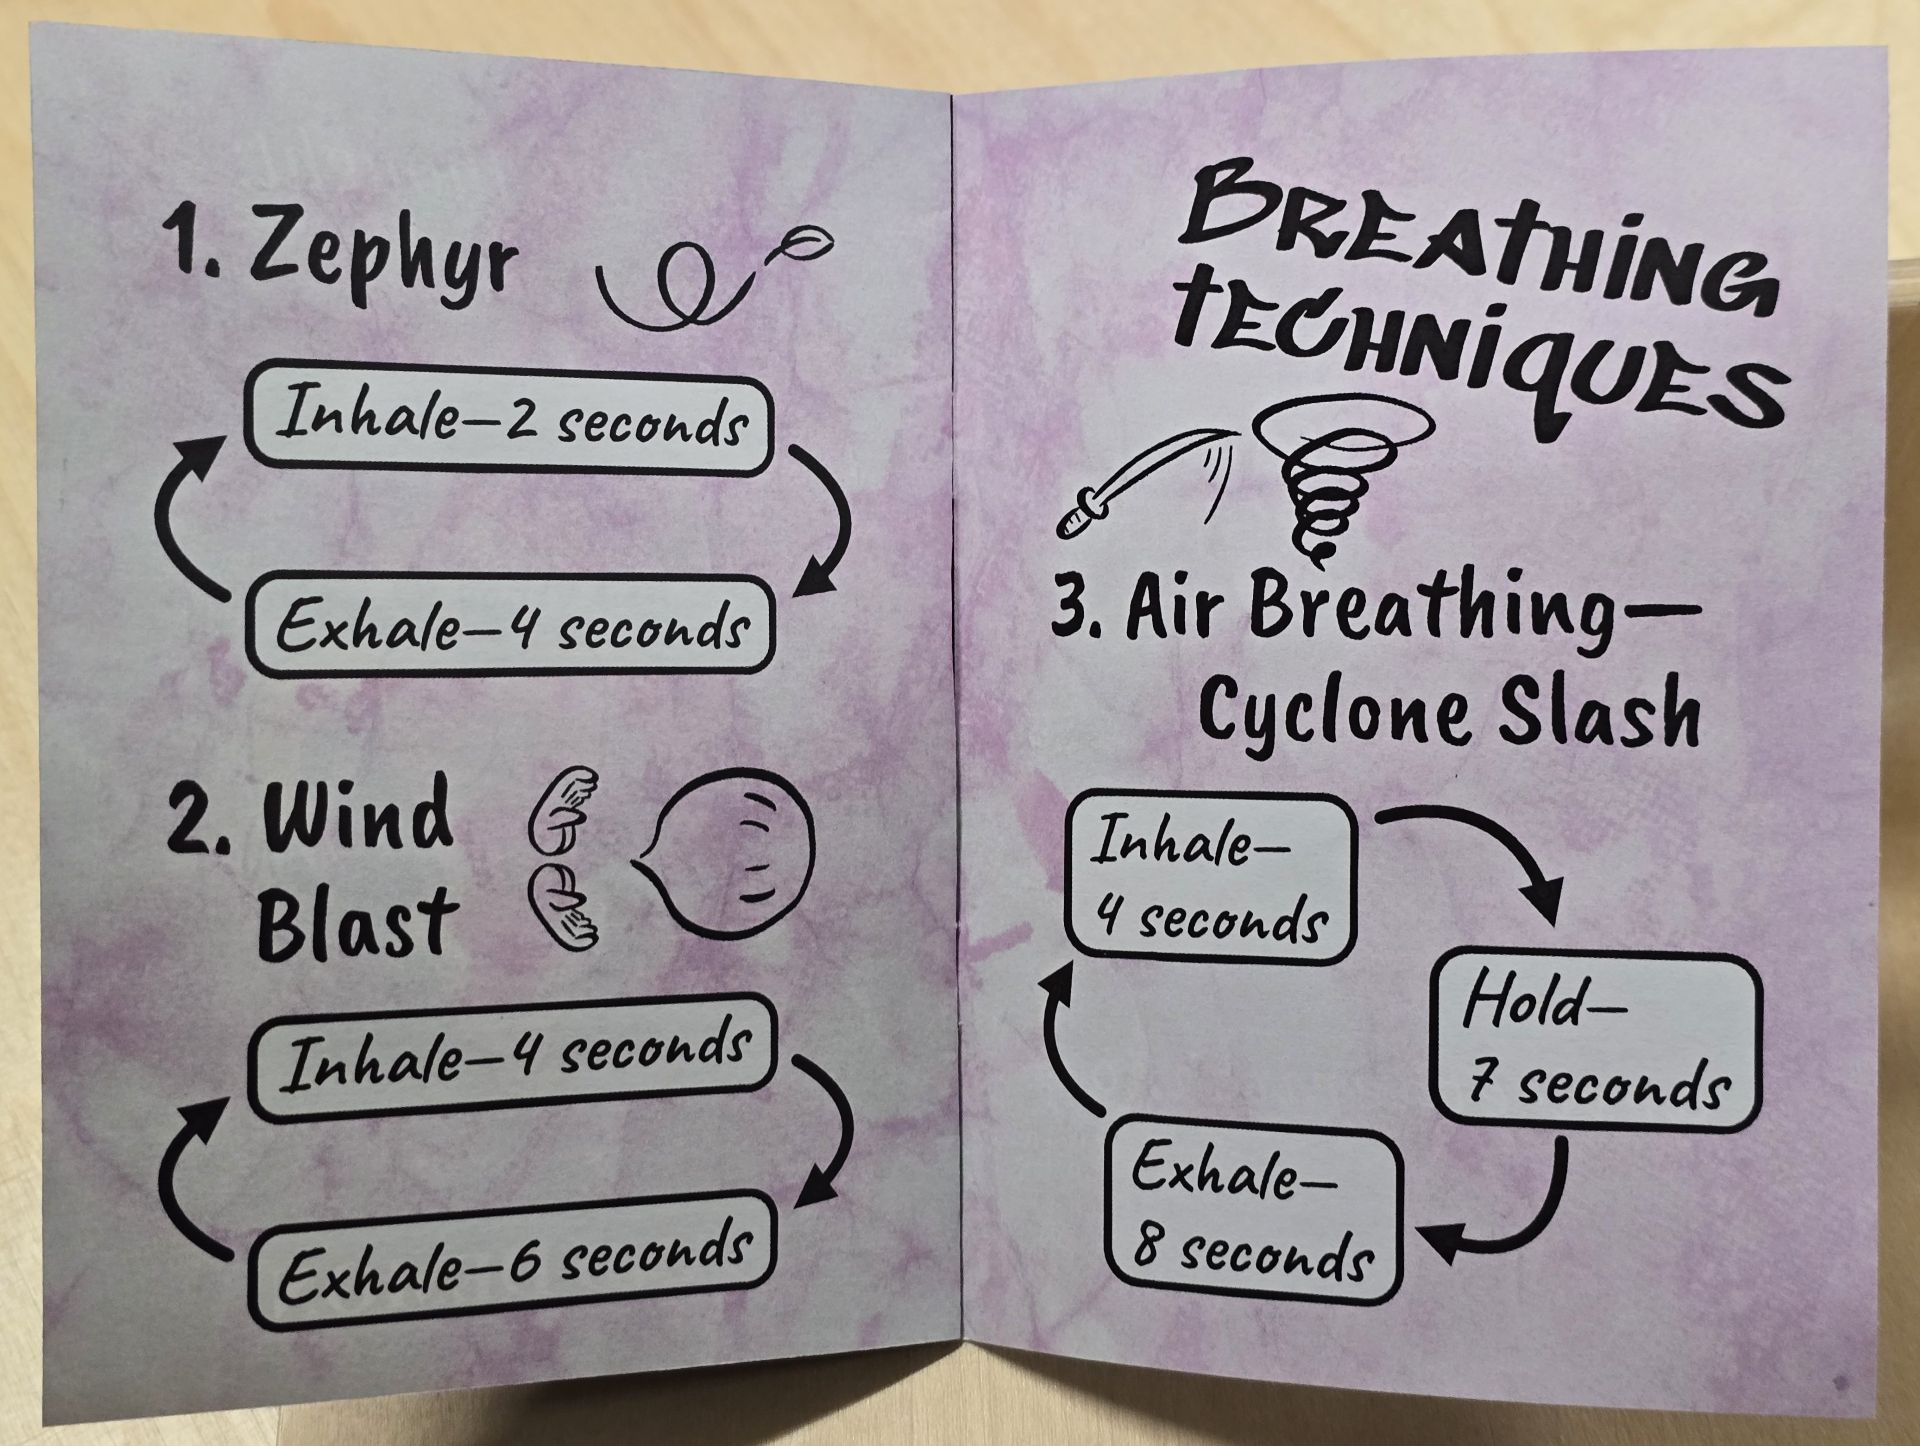 1. Zephyr
Inhale—2 seconds
Exhale—4 seconds
2. Wind
Blast
Inhale—4 seconds
Exhale—6 seconds
BREATHING
TECHNIQUES
3. Air Breathing—
Cyclone Slash
Inhale—
4 seconds
Hold—
7 seconds
Exhale—
8 seconds